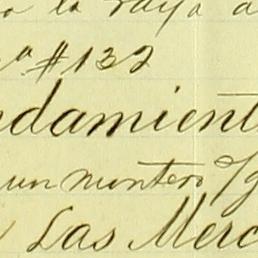 la raya a
#132
ndamient
un montero
Las Merc